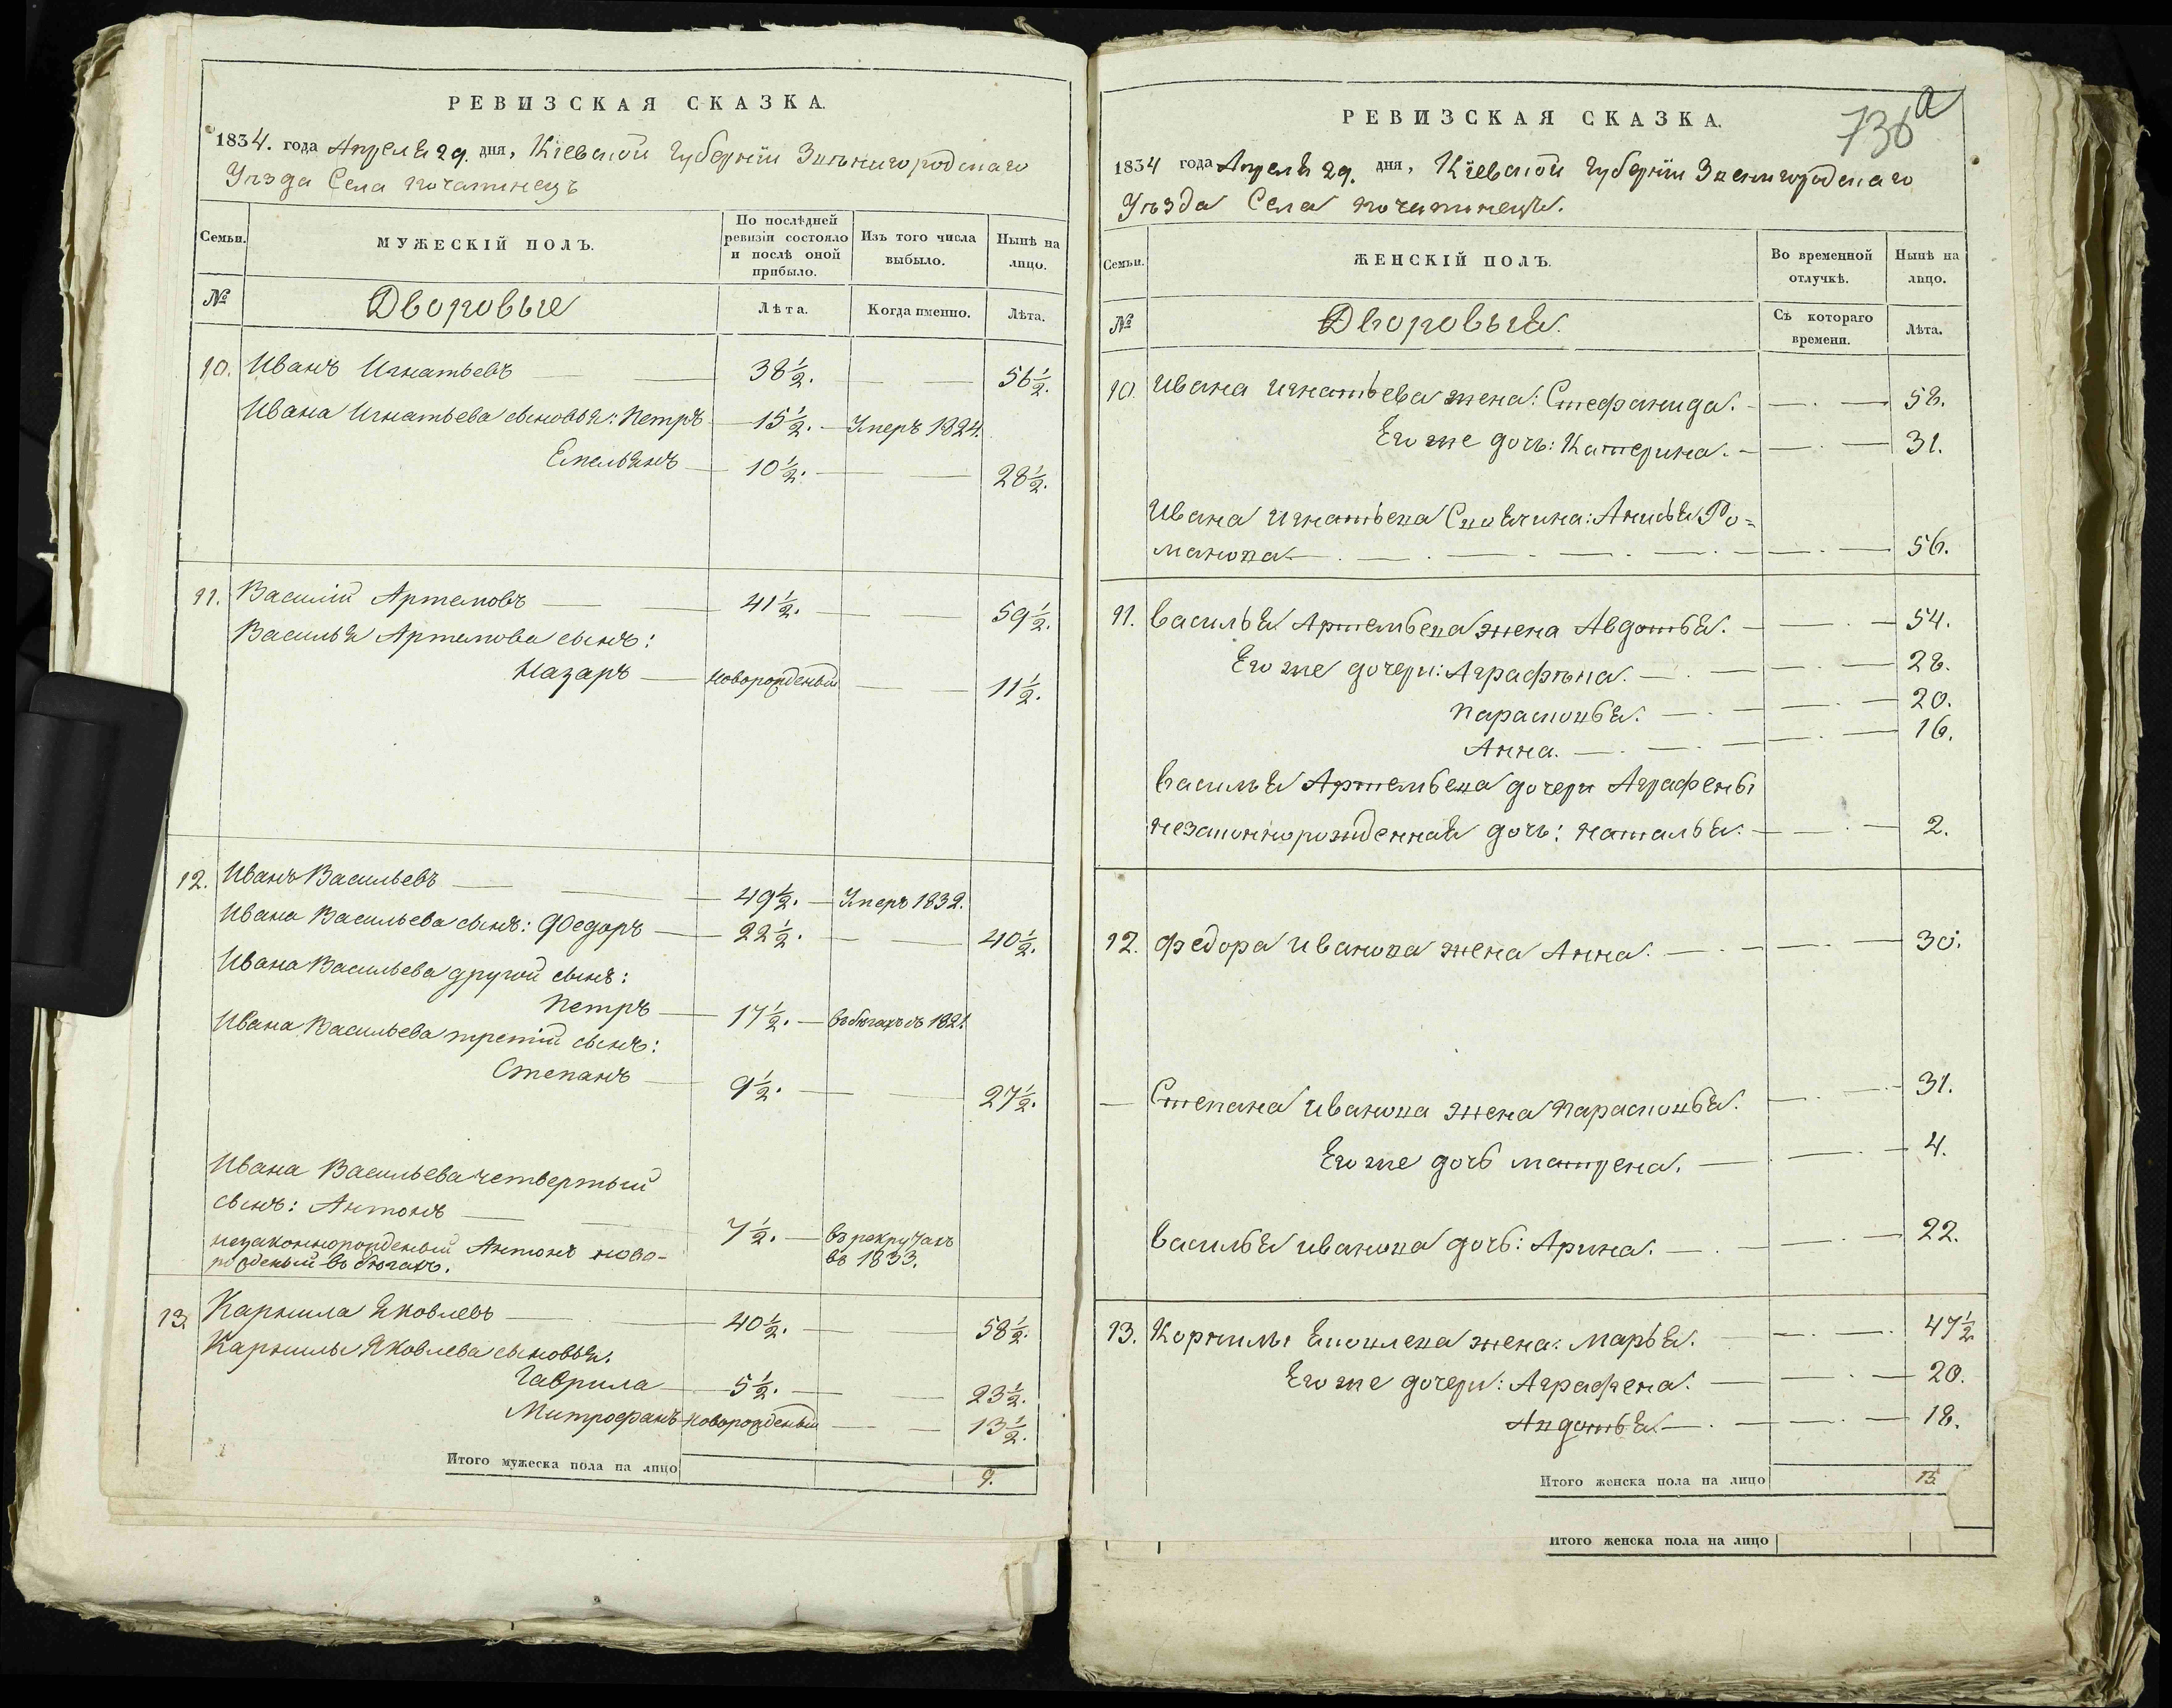 РЕВИЗСКАЯ СКАЗКА.
1834. года Апреля 29. дня, Кіевской Губерніи Звенигородскаго
Уезда Села Почапинецъ
Семьи.
МУЖЕСКІЙ ПОЛЪ.
По послѣдней ревизіи состояло и послѣ оной прибыло.
Изъ того числа выбыло.
Нынѣ на лицо.
№
Дворовые
Лѣта.
Когда именно.
Лѣта.
10. Иванъ Игнатьевъ 38½. 56½.
Ивана Игнатьева сыновья: Петръ 15½. Умеръ 1824.
Емельянъ 10½. 28½.
11. Василій Артемовъ 41½. 59½.
Василья Артемова сынъ:
Назаръ новорожденый 11½.
12. Иванъ Васильевъ 49½. Умеръ 1832.
Ивана Васильева сынъ: Федоръ 22½. 40½.
Ивана Васильева другой сынъ:
Петръ 17½. въ бегахъ съ 1821.
Ивана Васильева третій сынъ:
Степанъ 9½. 27½.
Ивана Васильева четвертый
сынъ: Антонъ 7½. въ рекрутахъ
въ 1833.
незаконнорожденый Антонъ ново-
рожденый въ бегахъ.
13. Карнила Яковлевъ 40½. 58½.
Карнилы Яковлева сыновья:
Гаврила 5½. 23½.
Митрофанъ новорожденый 13½.
Итого мужеска пола на лицо 9.
736 а
РЕВИЗСКАЯ СКАЗКА.
1834 года Апреля 29. дня, Кіевской Губерніи Звенигородскаго
Уезда Села Почапинецъ.
Семьи.
ЖЕНСКІЙ ПОЛЪ.
Во временной отлучкѣ.
Нынѣ на лицо.
№
Дворовыя.
Съ котораго времени.
Лѣта.
10. Ивана Игнатьева жена: Стефанида. 58.
Его же дочь: Катерина. 31.
Ивана Игнатьева Своячина: Анисья Ро=
манова 56.
11. Василья Артемьева жена Авдотья. 54.
Его же дочери: Аграфѣна. 28.
Парасковья. 20.
Анна. 16.
Василья Артемьева дочери Аграфены
незаконнорожденная дочь: Наталья. 2.
12. Федора Иванова жена Анна. 30.
Степана Иванова жена Парасковья. 31.
Его же дочь Матрена. 4.
Василья Иванова дочь: Арина. 22.
13. Корнилы Яковлева жена: Марья. 47½
Его же дочери: Аграфена. 20.
Авдотья 18.
Итого женска пола на лицо 15.
Итого женска пола на лицо